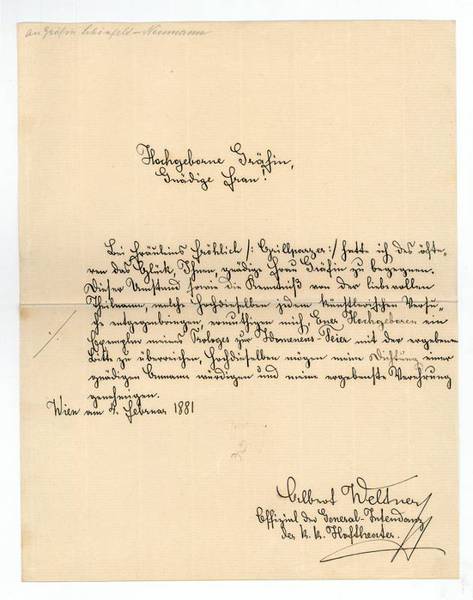 an Gräfin Schönfeld-Neumann
Hochgeborne Gräfin,
Gnädige Frau!
Bei Fräuleins Fröhlich /: Grillparzer :/ hatte ich des öfte-
ren das Glück, Ihnen, gnädige Frau Gräfin zu begegnen.
Dieser Umstand sowie die Kenntniß von der liebevollen
Theilnahme, welche Hochdieselben jedem künstlerischen Versu-
che entgegenbringen, ermuthigen mich, Euer Hochgeboren ein
Exemplar meines Prologes zur Feier mit der ergebenen
Bitte zu überreichen, Hochdieselben mögen meine Dichtung einer
gnädigen Annahme würdigen und meine ergebenste Verehrung
genehmigen.
Wien am 4. Februar 1881
Albert Weltner
Offizial der General-Intendanz
der K. K. Hoftheater.